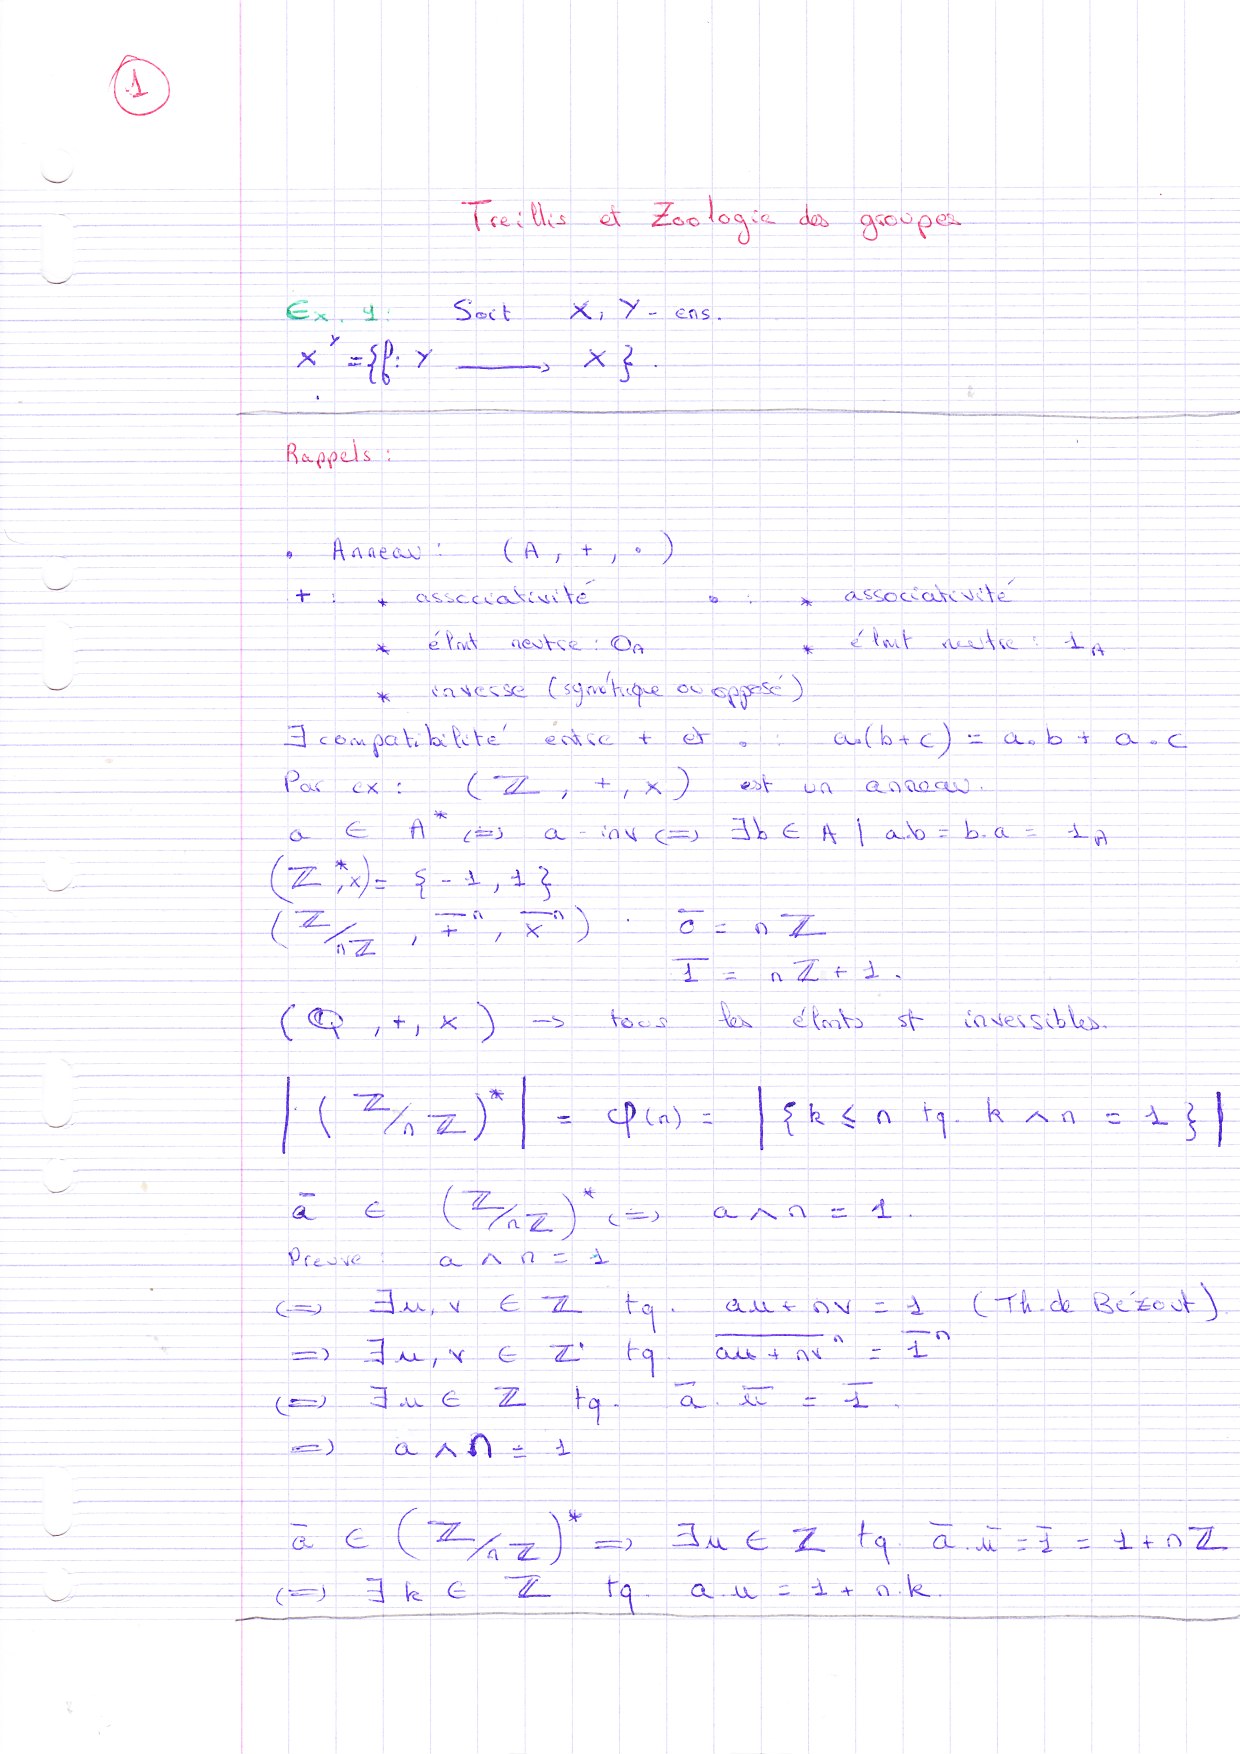 1
Treillis et Zoologie des groupes
Ex. 1: Soit X, Y - ens.
X^Y = {f: Y ⟶ X}.
Rappels :
• Anneau : (A, +, •)
+ : * associativité • : * associativité
* élmt neutre : 0_A * élmt neutre : 1_A
* inverse (symétrique ou opposé)
∃ compatibilité entre + et • : a.(b+c) = a.b + a.c
Par ex : (ℤ, +, ×) est un anneau.
a ∈ A^* ⟺ a - inv ⟺ ∃b ∈ A | a.b = b.a = 1_A
(ℤ^*, ×) = {-1, 1}
(ℤ/nℤ, +̅^n, ×̅^n) . 0̅ = nℤ
1̅ = nℤ + 1.
(ℚ, +, ×) → tous les élmts st inversibles.
|(ℤ/nℤ)^*| = φ(n) = |{k ≤ n tq. k ∧ n = 1}|
a̅ ∈ (ℤ/nℤ)^* ⟺ a ∧ n = 1.
Preuve : a ∧ n = 1
⟺ ∃u, v ∈ ℤ tq. au + nv = 1 (Th. de Bézout).
⟹ ∃u, v ∈ ℤ tq. \overline{au + nv}^n = 1̅^n
⟺ ∃u ∈ ℤ tq. a̅ . u̅ = 1̅.
⟹ a ∧ n = 1
a̅ ∈ (ℤ/nℤ)^* ⟹ ∃u ∈ ℤ tq. a̅ . u̅ = 1̅ = 1 + nℤ
⟺ ∃k ∈ ℤ tq. a.u = 1 + n.k.